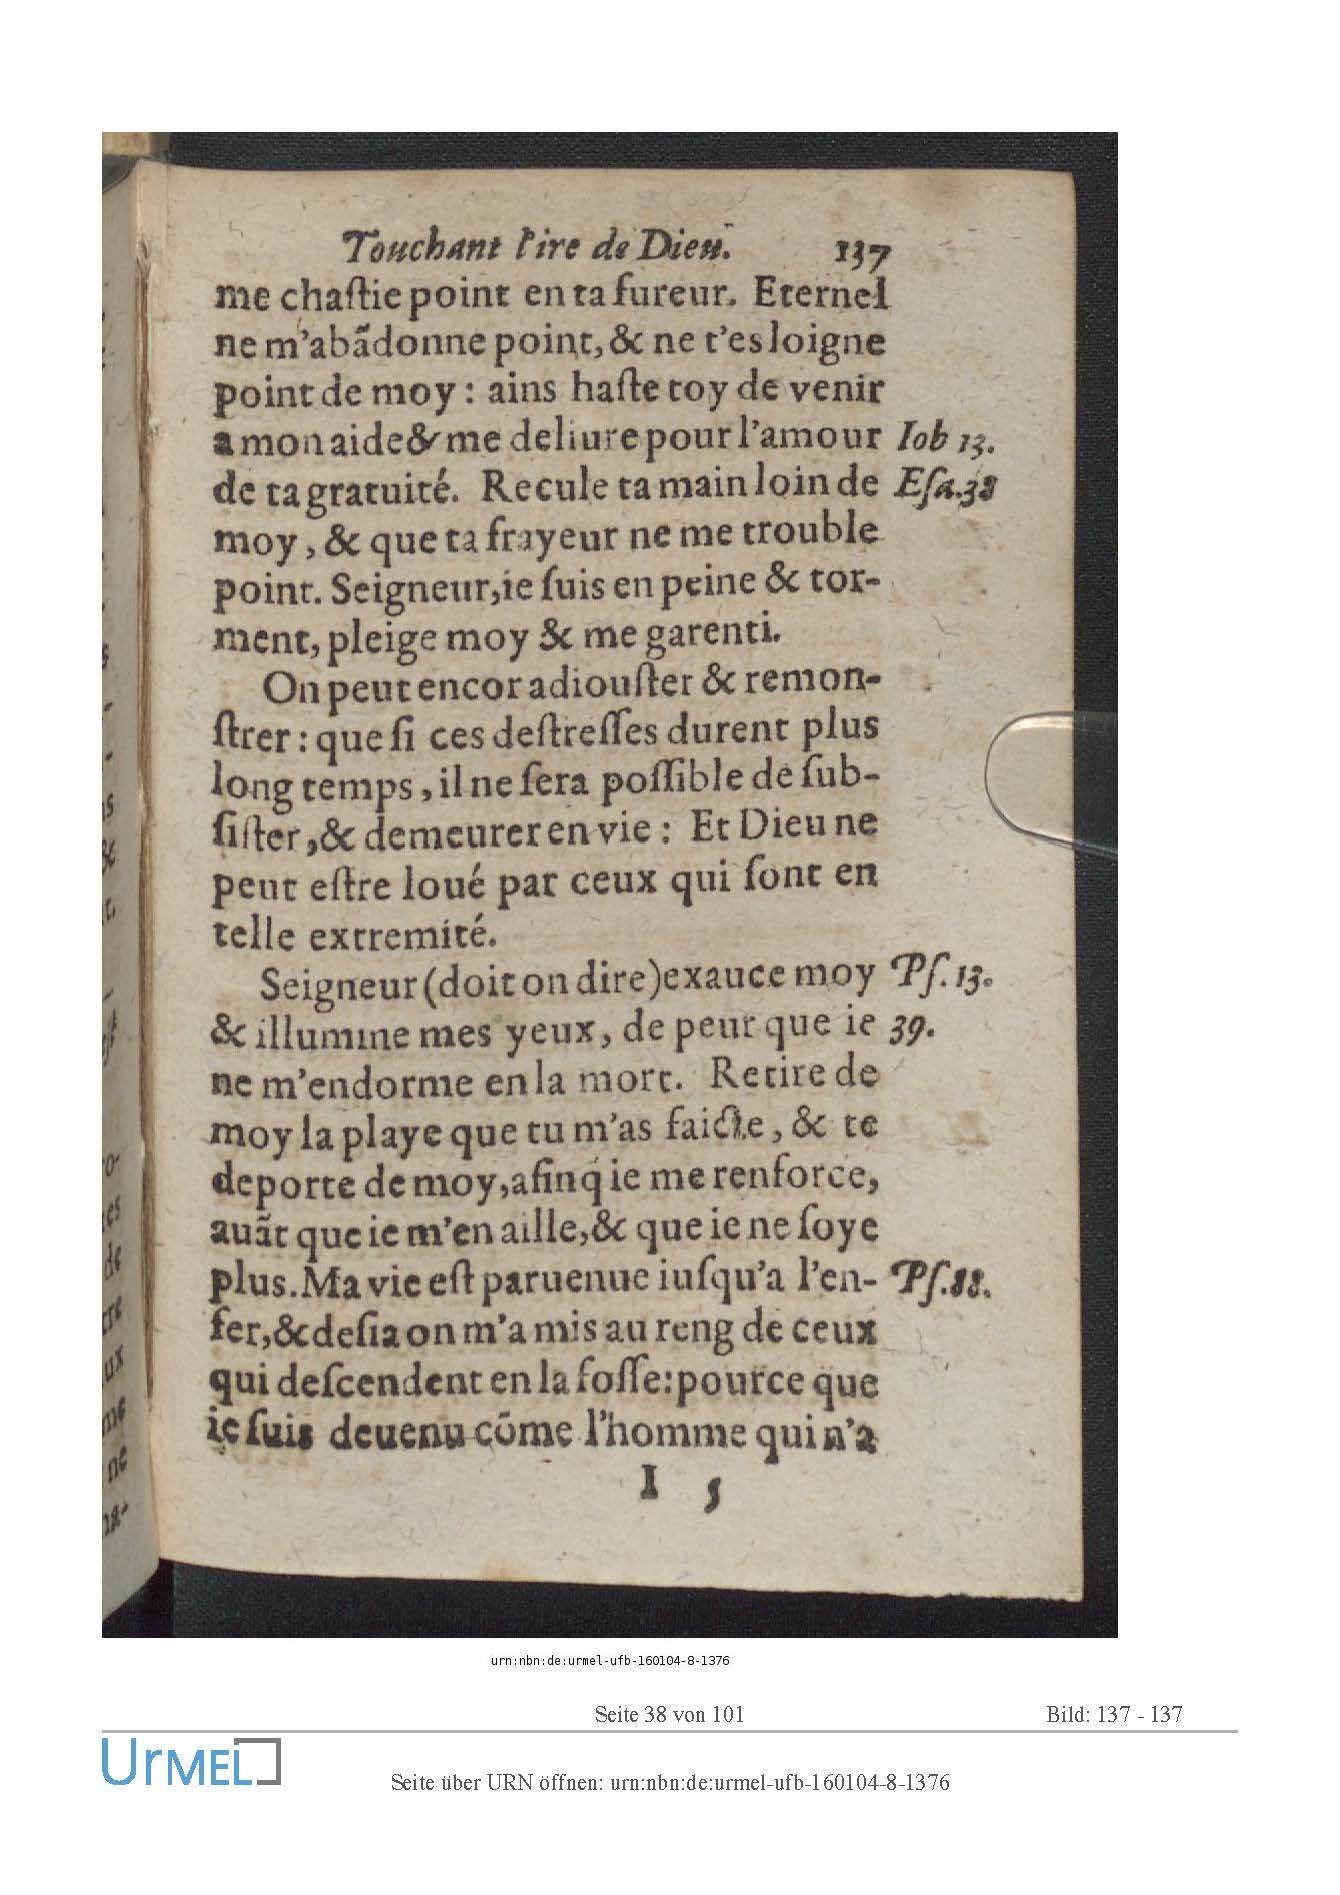 Touchant l'ire de Dieu. 137
me chaſtie point en ta fureur. Eternel
ne m'abãdonne point, & ne t'esloigne
point de moy : ains haſte toy de venir
a mon aide & me deliure pour l'amour Iob 13.
de ta gratuité. Recule ta main loin de Eſa.38
moy, & que ta frayeur ne me trouble
point. Seigneur, ie ſuis en peine & tor-
ment, pleige moy & me garenti.
On peut encor adiouſter & remon-
ſtrer : que ſi ces deſtreſſes durent plus
long temps, il ne ſera poſſible de ſub-
ſiſter, & demeurer en vie : Et Dieu ne
peut eſtre loué par ceux qui ſont en
telle extremité.
Seigneur (doit on dire) exauce moy Pſ.13.
& illumine mes yeux, de peur que ie 39.
ne m'endorme en la mort. Retire de
moy la playe que tu m'as faicte, & te
deporte de moy, afin q́ ie me renforce,
auãt que ie m'en aille, & que ie ne ſoye
plus. Ma vie eſt paruenue iuſqu'a l'en- Pſ.88.
fer, & deſia on m'a mis au reng de ceux
qui deſcendent en la foſſe: pource que
ie ſuis deuenu cõme l'homme qui n'a
I 5
urn:nbn:de:urmel-ufb-160104-8-1376
Seite 38 von 101 Bild: 137 - 137
UrMEL
Seite über URN öffnen: urn:nbn:de:urmel-ufb-160104-8-1376